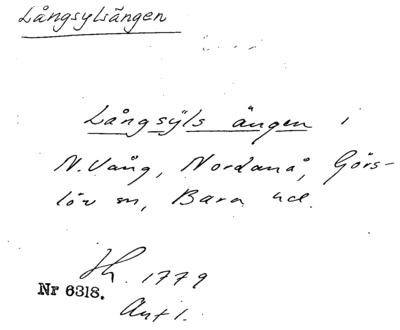 Långsylsängen
Långsÿls ängen i
N. Vång, Nordanå, Görs-
löv sn, Bara hd.
Jh. 1779
Nr 6318.
Ant 1.